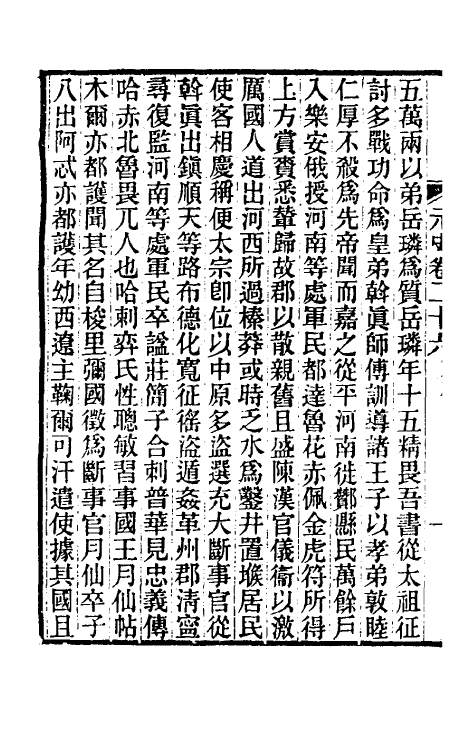 元史卷二十六
五萬兩以弟岳璘爲質岳璘年十五精畏吾書從太祖征
討多戰功命爲皇弟斡眞師傅訓導諸王子以孝弟敦睦
仁厚不殺爲先帝聞而嘉之從平河南徙酇縣民萬餘戶
入樂安俄授河南等處軍民都達魯花赤佩金虎符所得
上方賞賚悉輦歸故郡以散親舊且盛陳漢官儀衞以激
厲國人道出河西所過榛莽或時乏水爲鑿井置堠居民
使客相慶稱便太宗卽位以中原多盜選充大斷事官從
斡眞出鎮順天等路布德化寬征徭盜遁姦革州郡淸寧
尋復監河南等處軍民卒諡莊簡子合刺普華見忠義傳
哈赤北魯畏兀人也哈刺弈氏性聰敏習事國王月仙帖
木爾亦都護聞其名自梭里彌國徵爲斷事官月仙卒子
八出阿忒亦都護年幼西遼主鞠爾可汗遣使據其國且